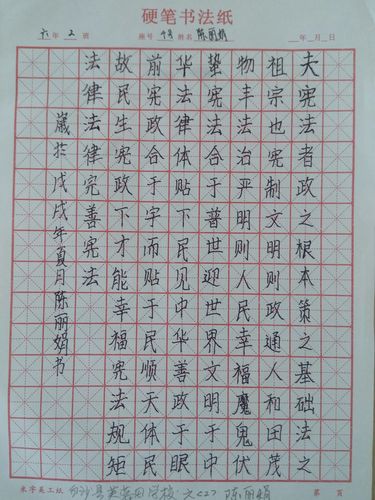 硬笔书法纸
六年2班 座号 姓名陈丽娟 年月日
夫宪法者政之根本策之基础法之
祖宗也宪制文明则政通人和田茂
物丰法治严明则人民幸福魔鬼伏
蛰宪法合于普世迎世界文明于中
华法律体贴于民见中华善政于眼
前宪政合于宇而贴于民顺天体民
故民生宪政下才能幸福宪法规矩
法律法律宪善宪法
岁于戊戌年夏月陈丽娟书
米字美工坛 第 页